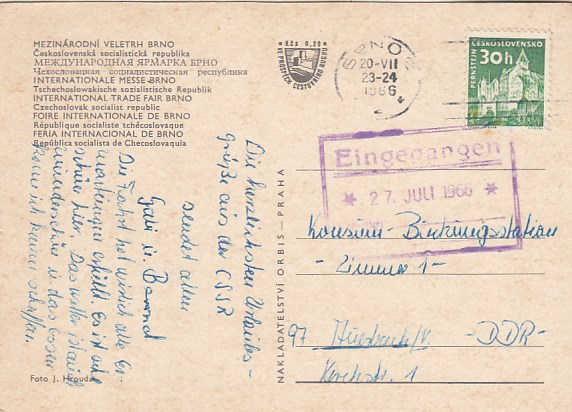 MEZINÁRODNÍ VELETRH BRNO
Československá socialistická republika
МЕЖДУНАРОДНАЯ ЯРМАРКА БРНО
Чехословацкая социалистическая республика
INTERNATIONALE MESSE-BRNO
Tschechoslowakische sozialistische Republik
INTERNATIONAL TRADE FAIR BRNO
Czechoslovak socialist republic
FOIRE INTERNATIONALE DE BRNO
République socialiste tchécoslovaque
FERIA INTERNACIONAL DE BRNO
República socialista de Checoslovaquia
Kčs 0,20
BRNO 2
20-VII
23-24
1966
ČESKOSLOVENSKO
30h
PERNŠTEJN
Eingegangen
* 27. JULI 1966 *
Die herzlichsten Urlaubs-
grüße aus der ČSSR
sendet allen
Gabi u. Bernd
Die Fahrt hat wirklich alle Er-
wartungen erfüllt. Es ist sehr
schön hier. Das Wetter ist auch
wunderschön u. das Essen
kann ich kaum schaffen.
NAKLADATELSTVÍ ORBIS - PRAHA
Konsum-
Zimmer 1-
97
-DDR-
1
Foto J. Hrouda